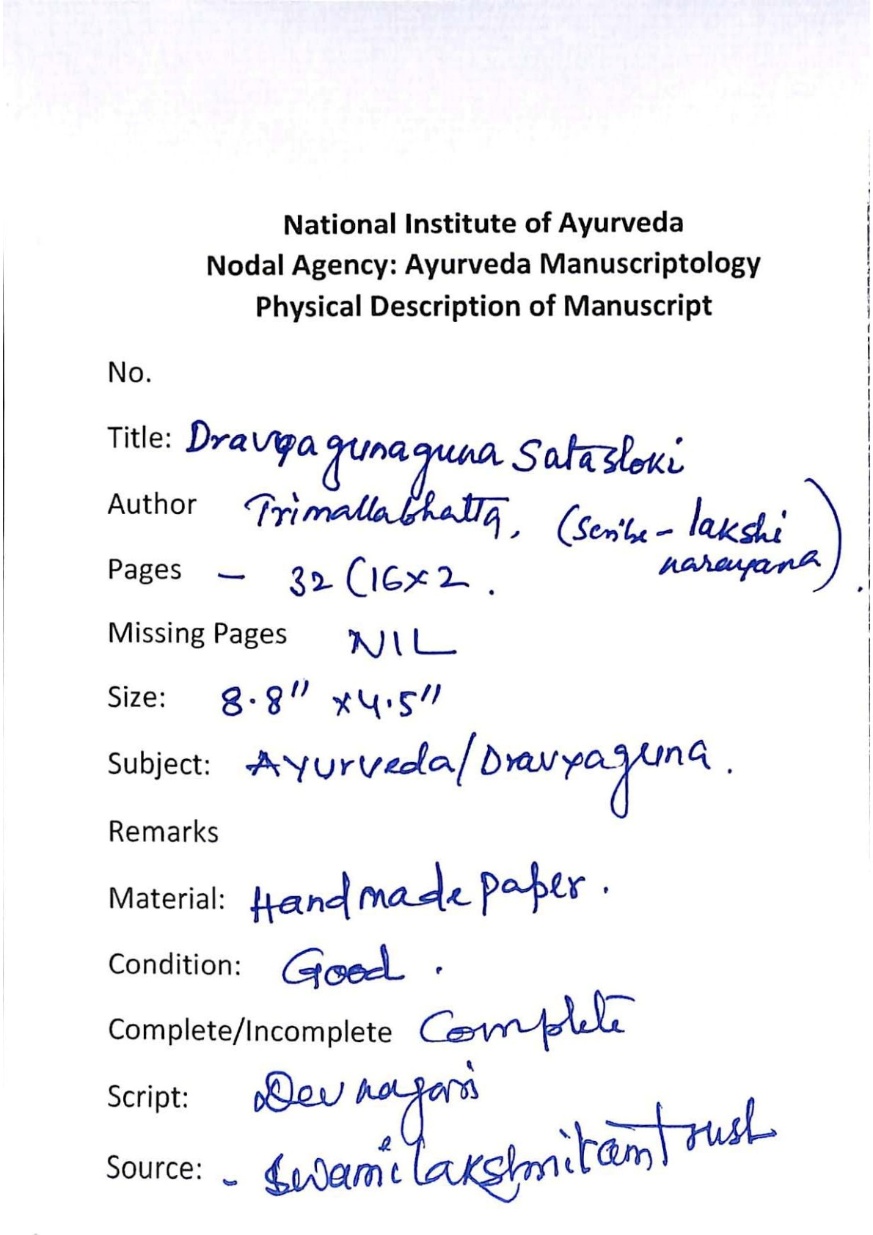 National Institute of Ayurveda
Nodal Agency: Ayurveda Manuscriptology
Physical Description of Manuscript
No.
Title: Dravyagunaguna Satasloki
Author Trimallabhatta, (Scribe - lakshi
narayana)
Pages - 32 (16x2.
Missing Pages NIL
Size: 8.8" x4.5"
Subject: Ayurveda/Dravyaguna.
Remarks
Material: Handmade paper.
Condition: Good.
Complete/Incomplete Complete
Script: Devnagari
Source: - Swami Trust